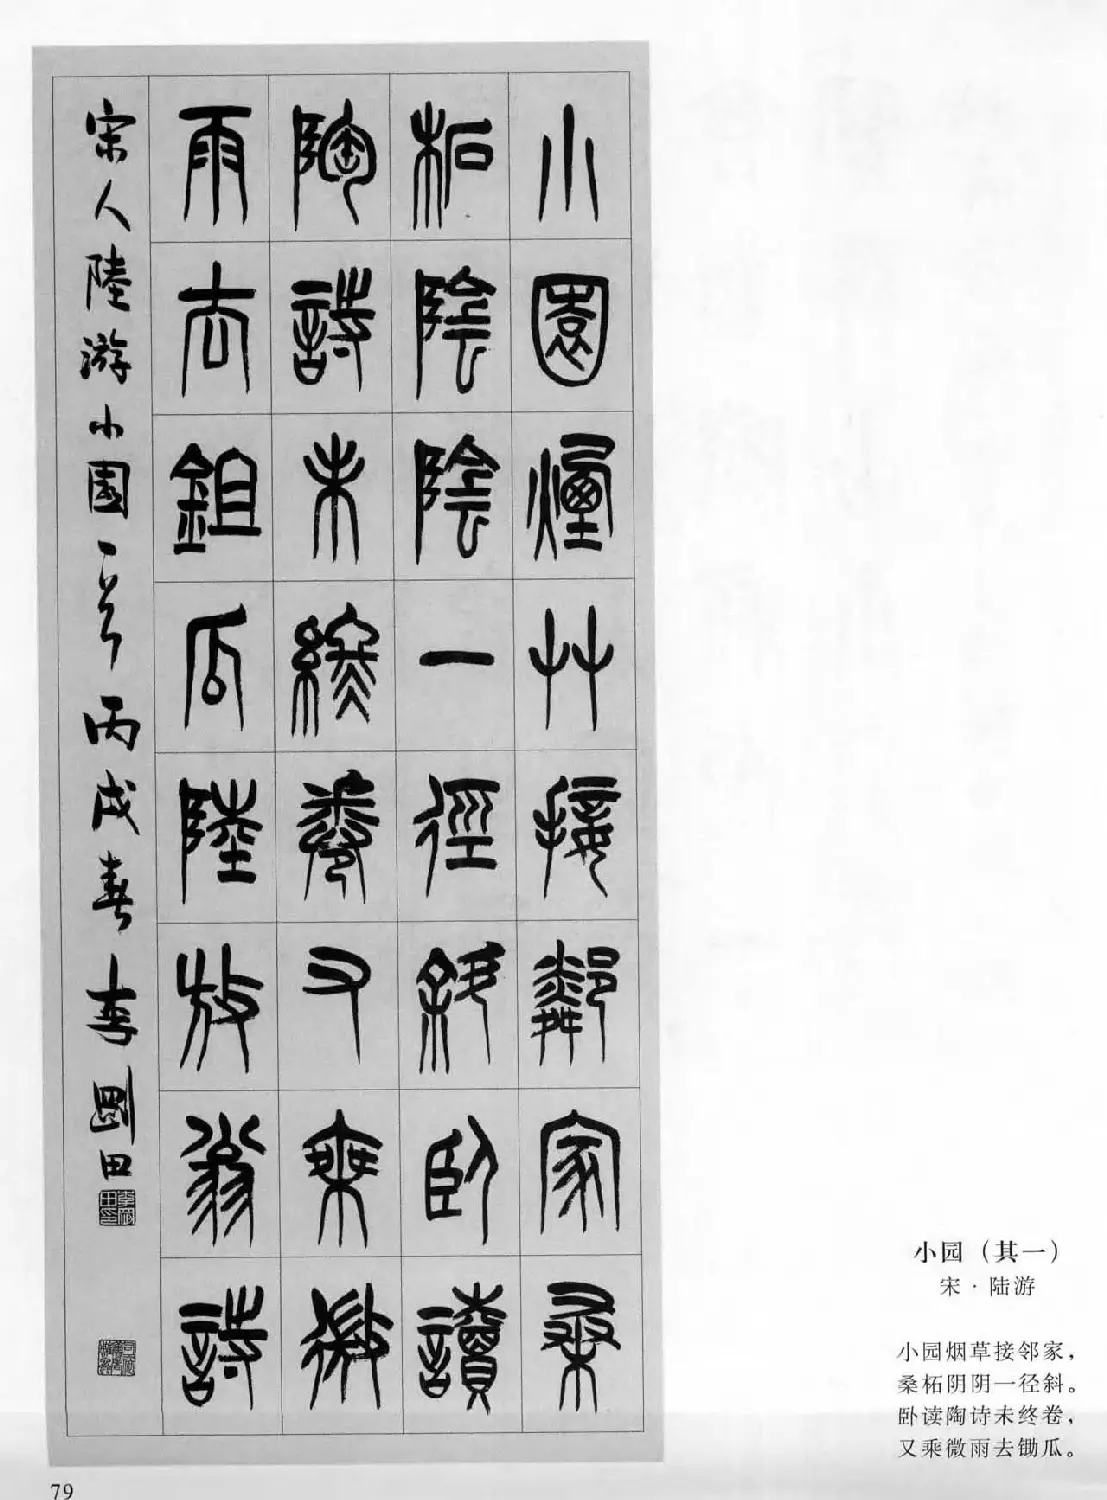 小園煙艸接鄰家桒
柘陰陰一徑斜臥讀
陶詩未終卷又乘微
雨去鉏瓜陸放翁詩
宋人陸游小園一首丙戌春李剛田
小园（其一）
宋·陆游
小园烟草接邻家，
桑柘阴阴一径斜。
卧读陶诗未终卷，
又乘微雨去锄瓜。
79